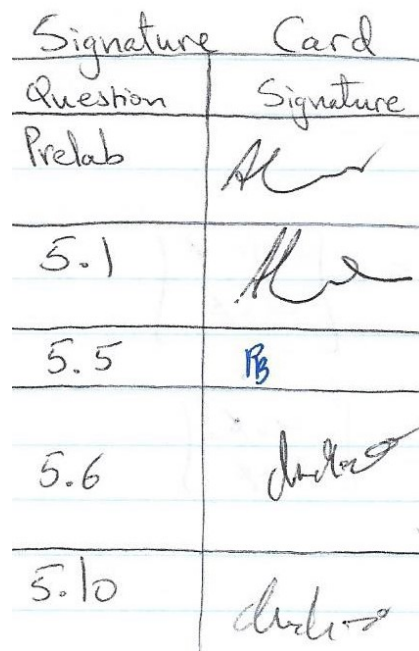 Signature Card
Question Signature
Prelab
5.1
5.5 RB
5.6
5.10